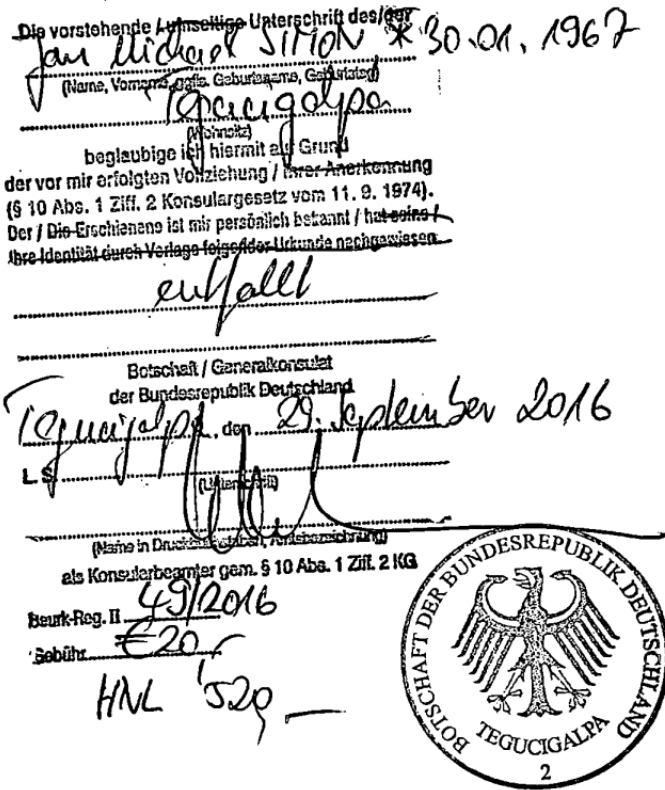 Die vorstehende / umseitige Unterschrift des/der
Jan Michael SIMON * 30.01.1967
(Name, Vorname, ggfls. Geburtsname, Geburtstag)
Tegucigalpa
(Wohnsitz)
beglaubige ich hiermit als Grund
der vor mir erfolgten Vollziehung / ihrer Anerkennung
(§ 10 Abs. 1 Ziff. 2 Konsulargesetz vom 11. 9. 1974).
Der / Die Erschienene ist mir persönlich bekannt / hat seine /
ihre Identität durch Vorlage folgender Urkunde nachgewiesen
entfällt
Botschaft / Generalkonsulat
der Bundesrepublik Deutschland
Tegucigalpa, den 29. September 2016
L.S.
(Unterschrift)
(Name in Druckbuchstaben, Amtsbezeichnung)
als Konsularbeamter gem. § 10 Abs. 1 Ziff. 2 KG
Beurk-Reg. II 49/2016
Gebühr € 20,-
HNL 520,—
BOTSCHAFT DER BUNDESREPUBLIK DEUTSCHLAND
TEGUCIGALPA
2